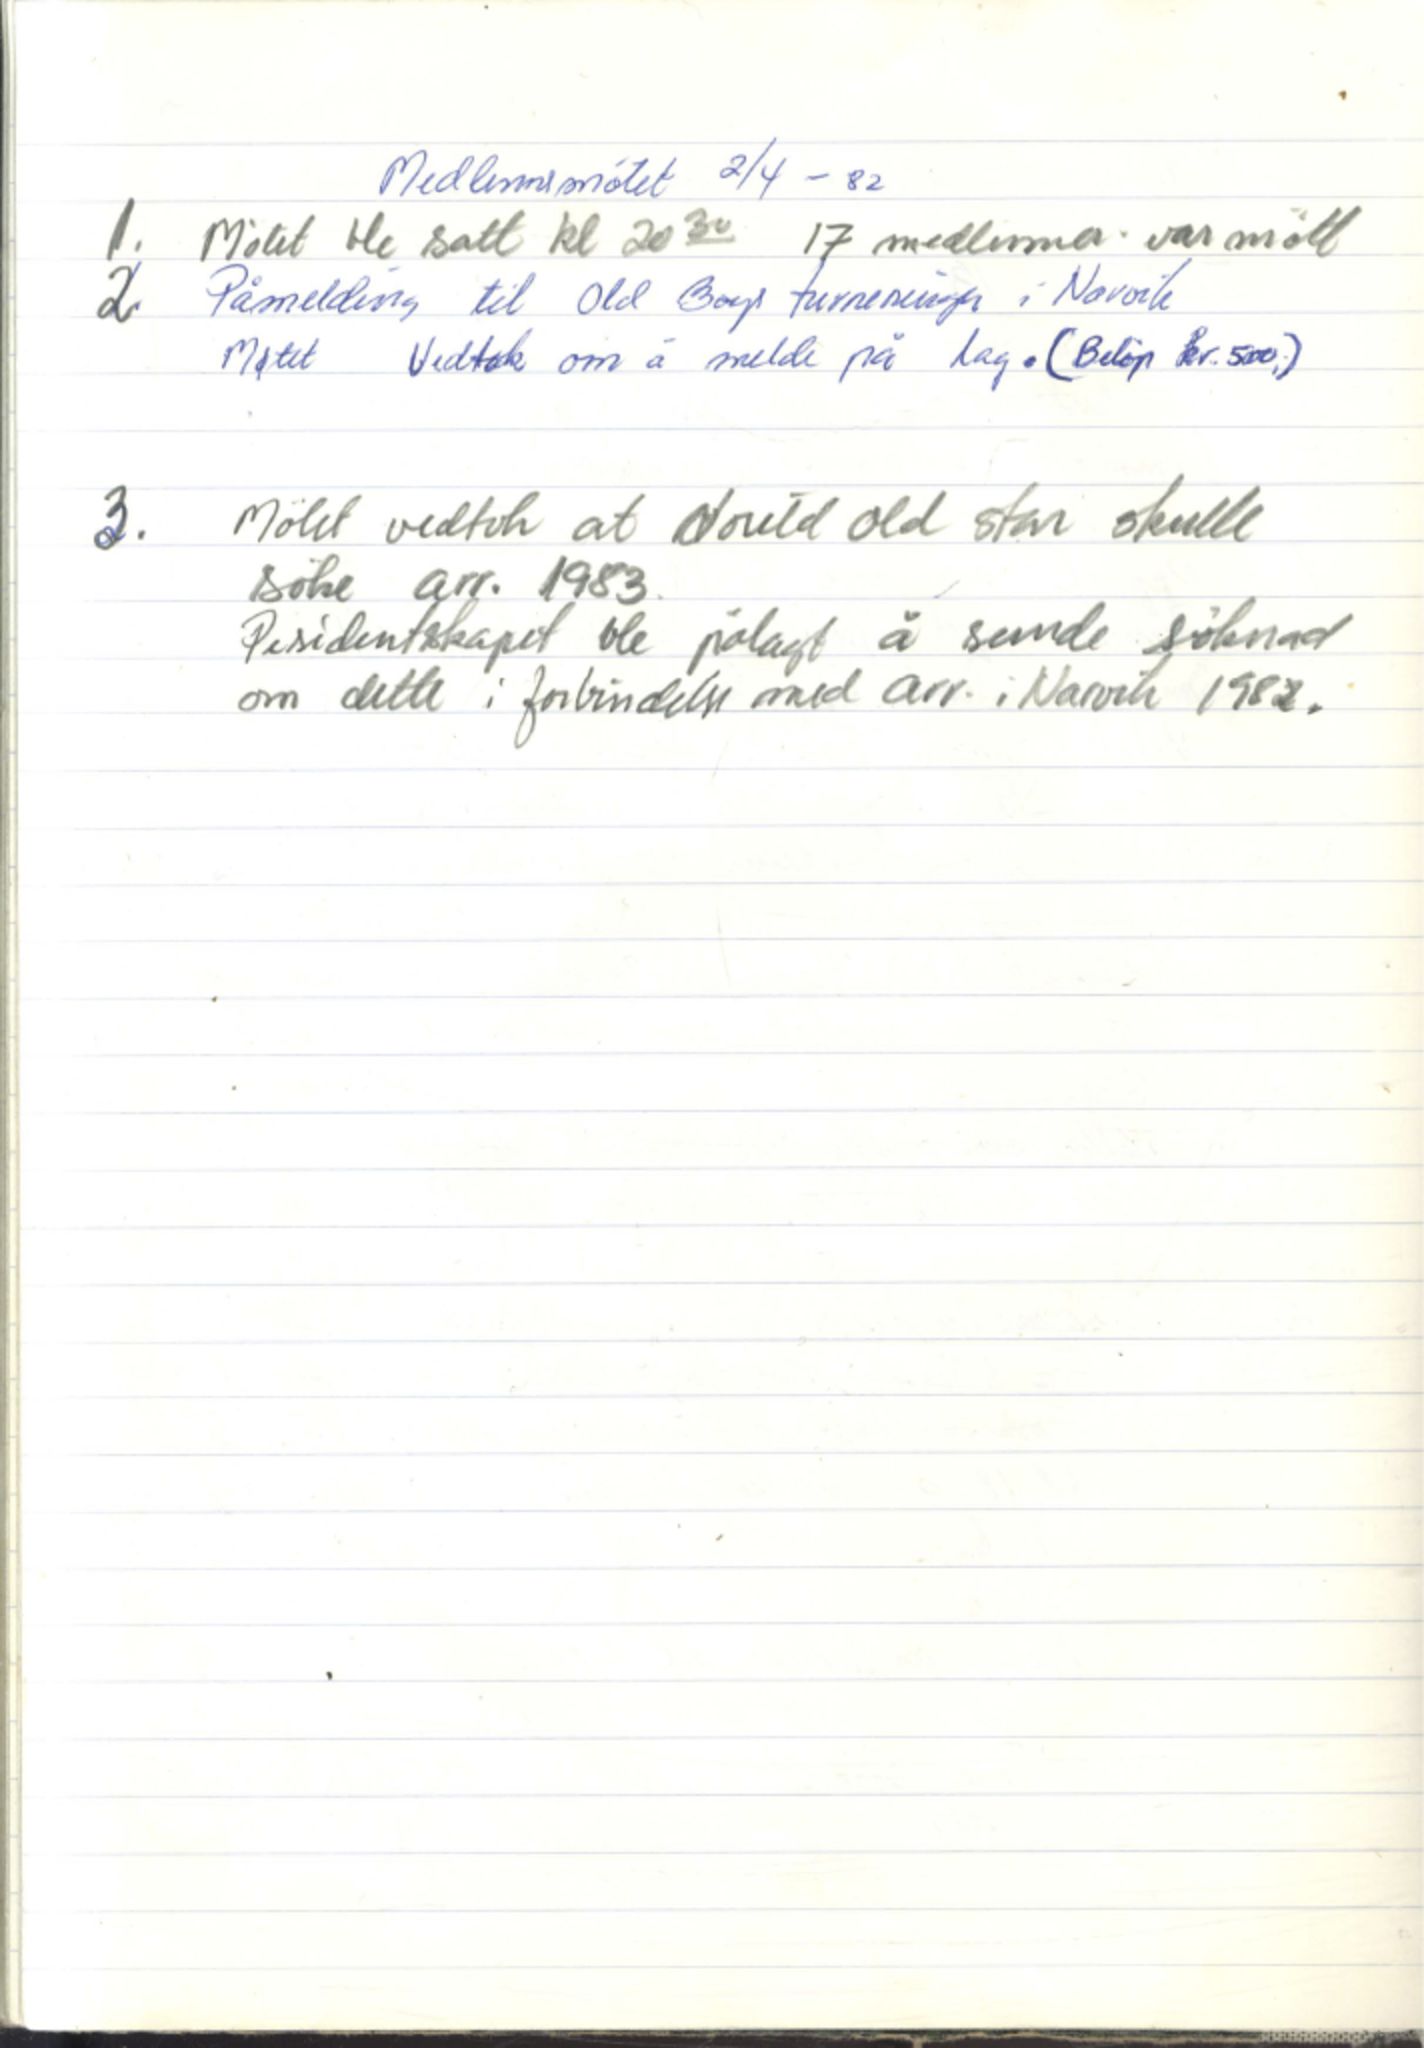 Medlemsmötet 2/4 - 82
1. Mötet ble satt kl 20 30 17 medlemmer var mött
2. Påmelding til Old Boys turneringer i Narvik
Møtet Vedtok om å melde på lag. (Belöp kr. 500,)
3. Mötet vedtok at Old star skulle
söke arr. 1983.
Presidentskapet ble pålagt å sende söknad
om dette i forbindelse med arr. i Narvik 1982.